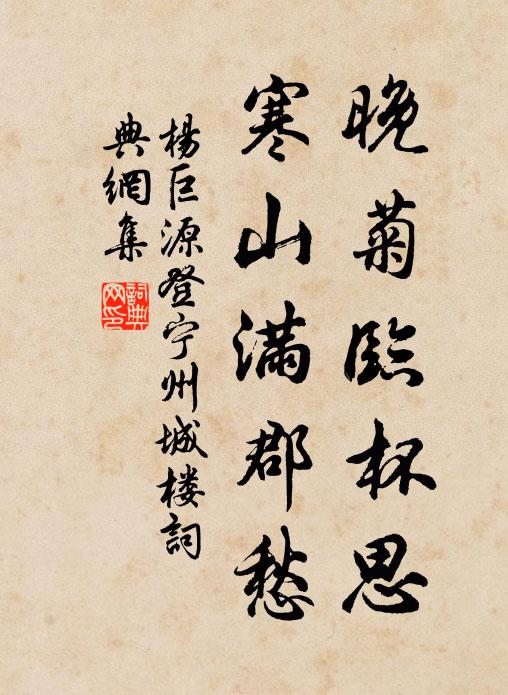 晚菊臨杯思
寒山滿郡愁
楊巨源登宁州城楼詞
典網集
詞典网印